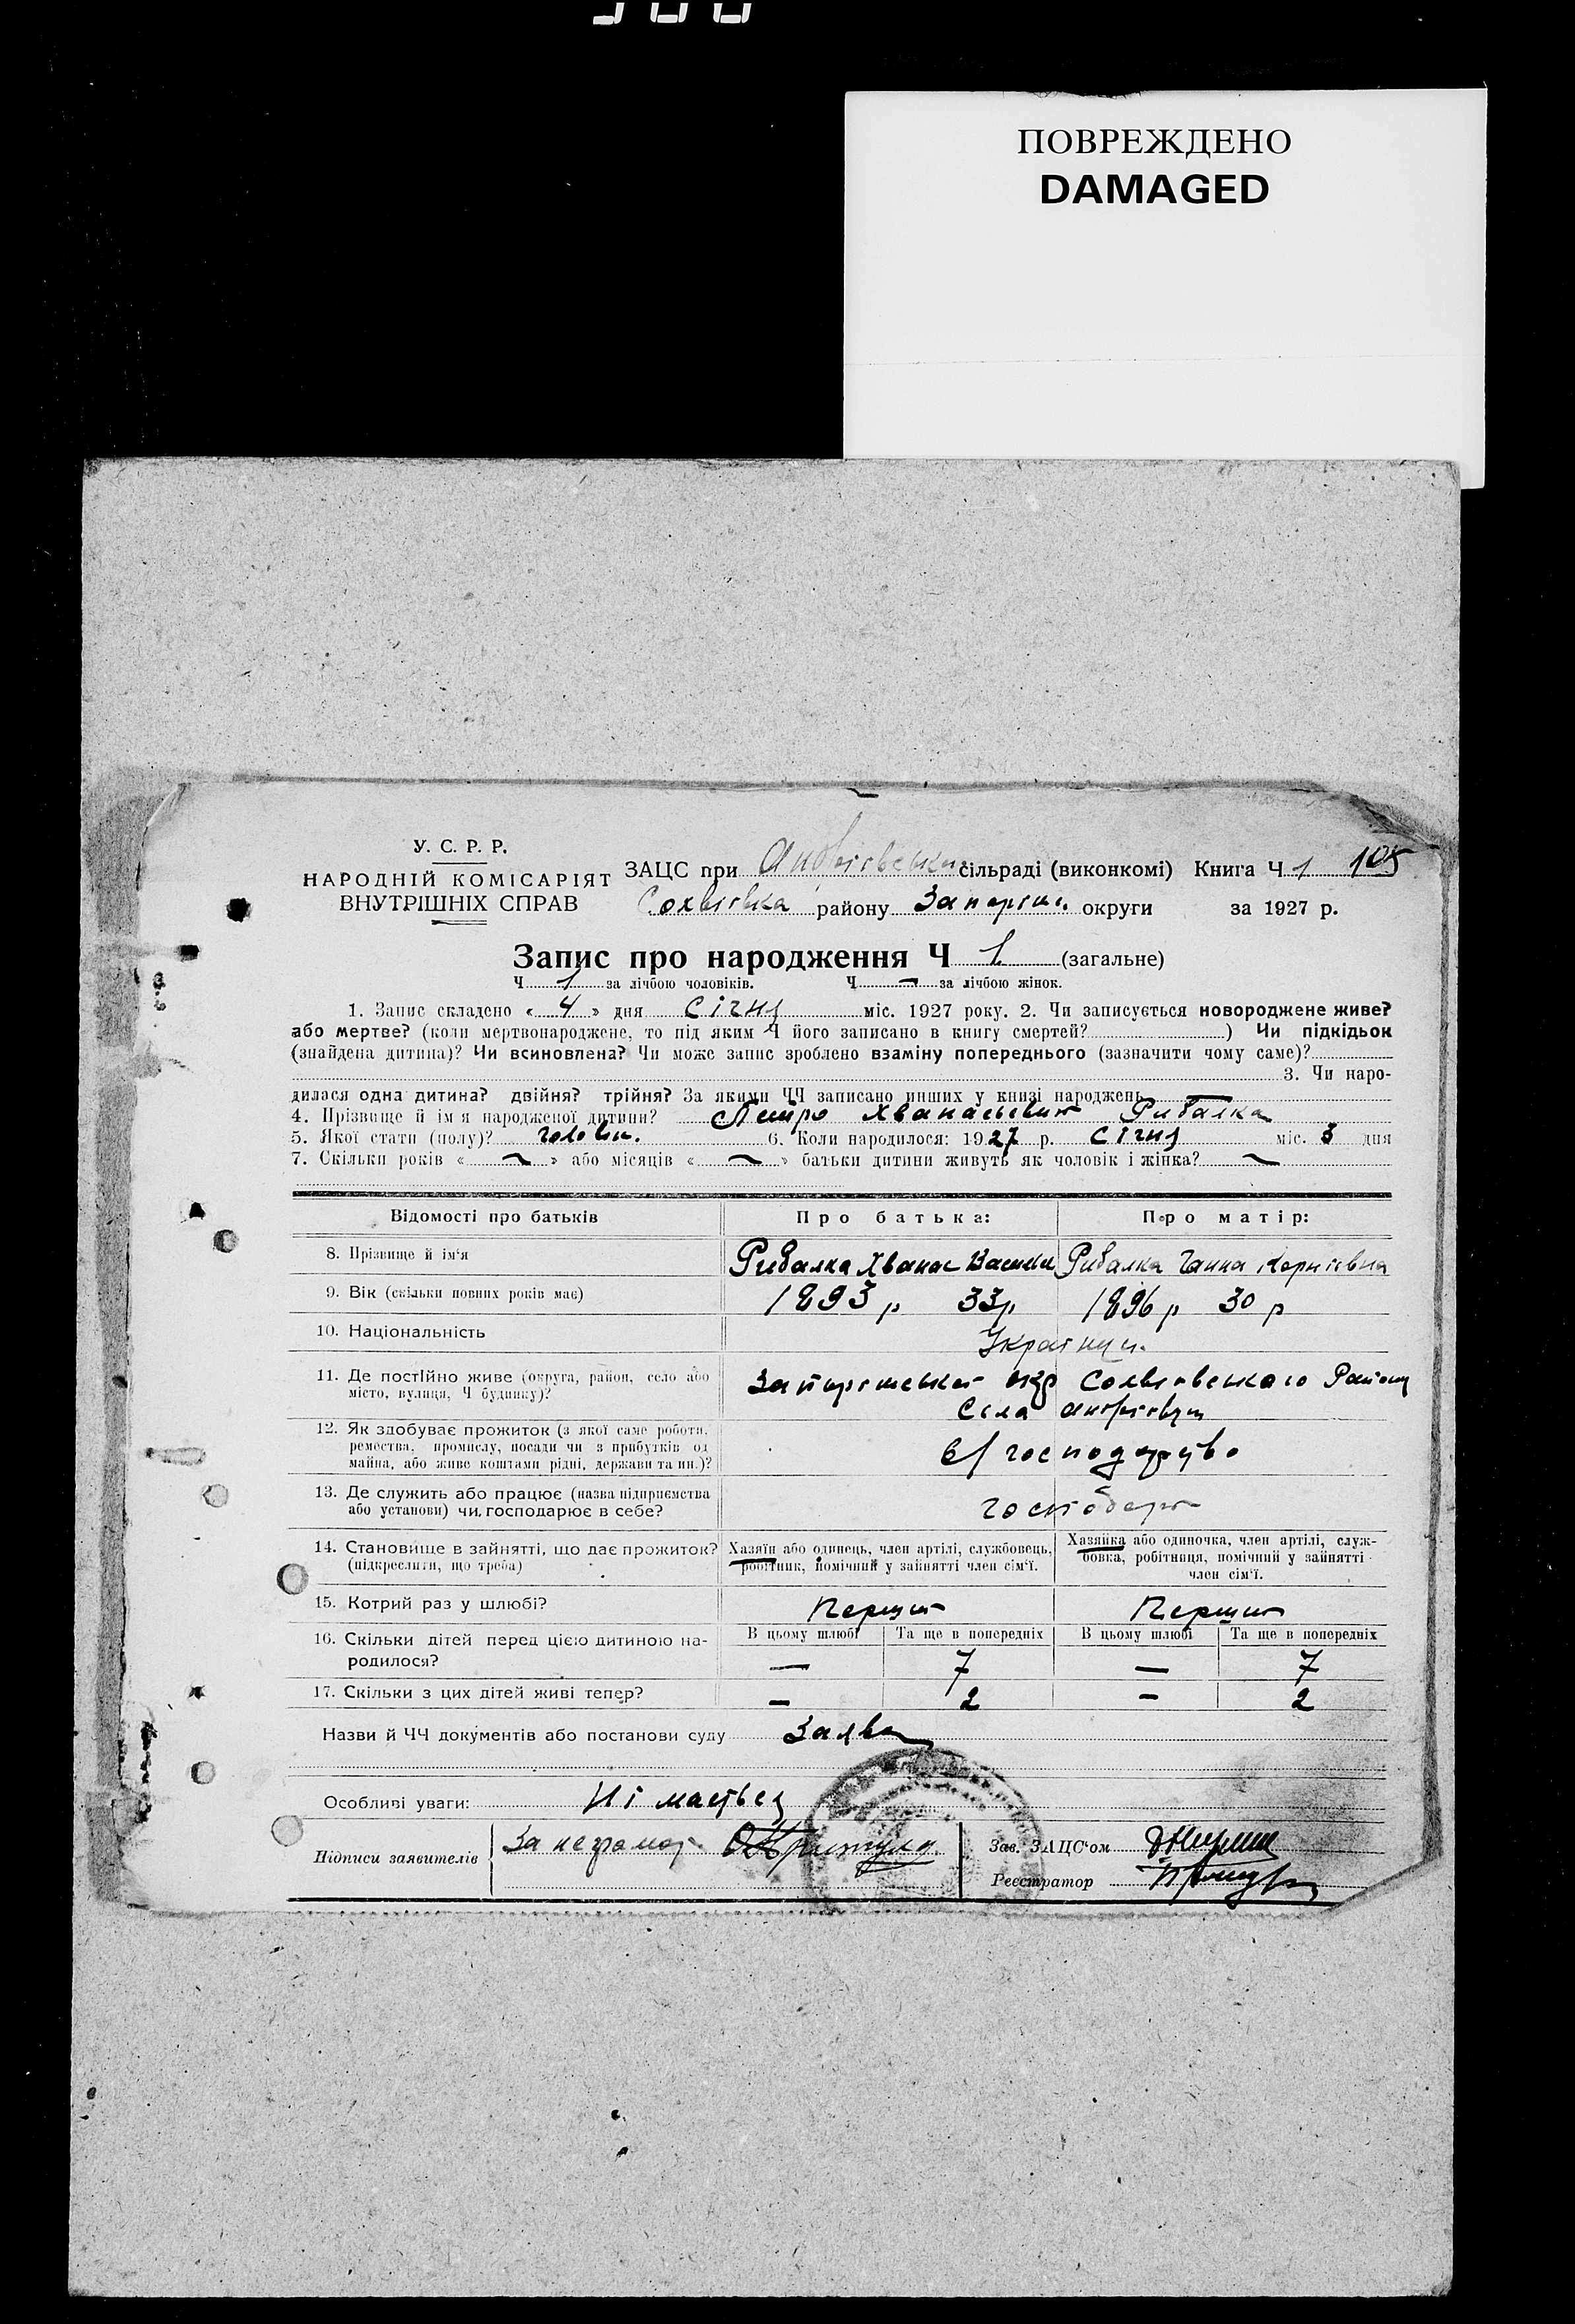 ПОВРЕЖДЕНО
DAMAGED
У. С. Р. Р.
НАРОДНІЙ КОМІСАРІЯТ
ВНУТРІШНІХ СПРАВ
ЗАЦС при сільраді (виконкомі) Книга Ч 1 105
району Запоріж. округи за 1927 р.
Запис про народження Ч 1 (загальне)
Ч 1 за лічбою чоловіків. Ч — за лічбою жінок.
1. Запис складено « 4 » дня Січня міс. 1927 року. 2. Чи записується новороджене живе?
або мертве? (коли мертвонароджене, то під яким Ч його записано в книгу смертей? ) Чи підкідьок
(знайдена дитина)? Чи всиновлена? Чи може запис зроблено взаміну попереднього (зазначити чому саме)?
3. Чи наро-
дилася одна дитина? двійня? трійня? За якими ЧЧ записано инших у книзі народжень
4. Прізвище й ім'я народженої дитини? Петро Хванасьевич Рибалка
5. Якої стати (полу)? чоловіч. 6. Коли народилося: 1927 р. Січня міс. 3 дня
7. Скільки років « — » або місяців « — » батьки дитини живуть як чоловік і жінка? —
Відомості про батьків Про батька: Про матір:
8. Прізвище й ім'я Рибалка Хванас Васильв Рибалка Ганна Корніївна
9. Вік (скільки повних років має) 1893 р 33 р 1896 р 30 р
10. Національність Українці.
11. Де постійно живе (округа, район, село або
місто, вулиця, Ч будинку)? окр Району
Села
12. Як здобуває прожиток (з якої саме роботи,
ремества, промислу, посади чи з прибутків од
майна, або живе коштами рідні, держави та ин.)? с/господарство
13. Де служить або працює (назва підприємства
або установи) чи, господарює в себе?
14. Становище в зайнятті, що дає прожиток?
(підкреслити, що треба)
Хазяїн або одинець, член артілі, службовець,
робітник, помічний у зайнятті член сім'ї.
Хазяйка або одиночка, член артілі, служ-
бовка, робітниця, помічний у зайнятті
член сім'ї.
15. Котрий раз у шлюбі? Перший Перший
16. Скільки дітей перед цією дитиною на-
родилося?
В цьому шлюбі Та ще в попередніх В цьому шлюбі Та ще в попередніх
— 7 — 7
17. Скільки з цих дітей живі тепер? — 2 — 2
Назви й ЧЧ документів або постанови суду Заява
Особливі уваги: Ні мається
Підписи заявителів За неграмот.
Зав. ЗАЦС'ом
Реєстратор